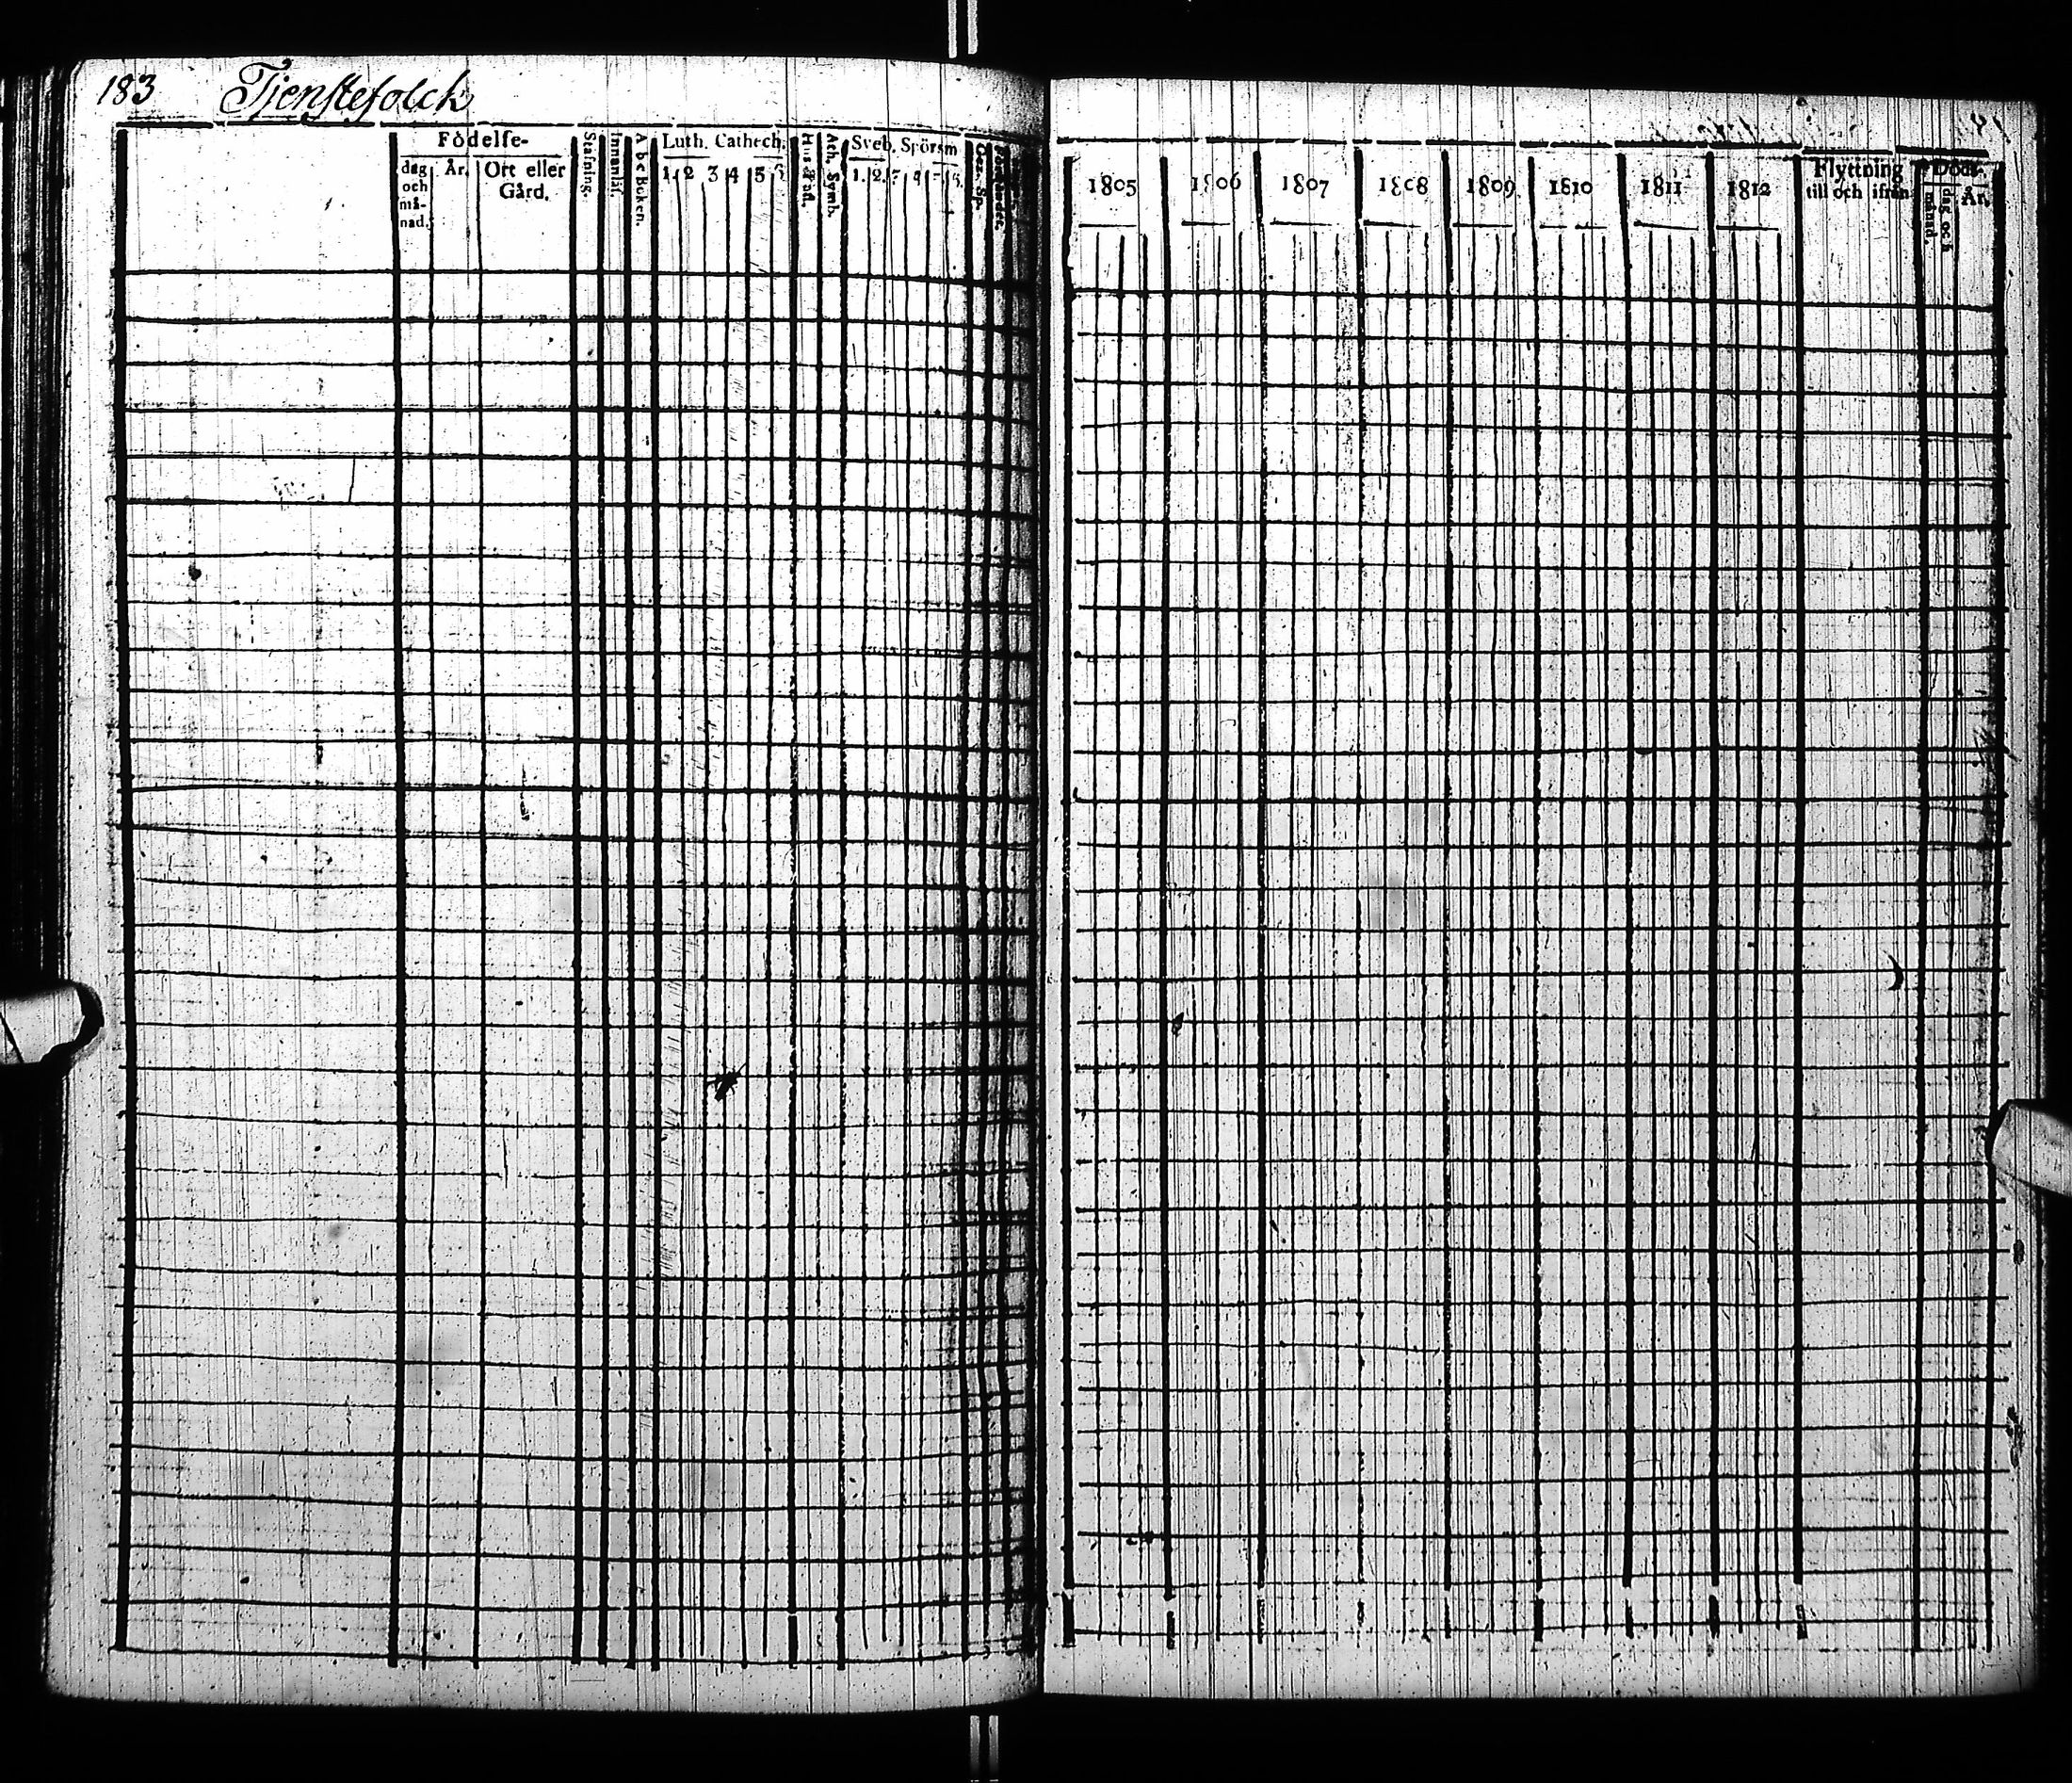 183 Tjenstefolck
Födelse-
dag och må- nad. År. Ort eller Gård.
Stafning.
Innanläs.
Abc Boken.
Luth. Cathech.
1. 2 3 4 5
Ath. Symb.
Sveb. Spörsm
1. 2.
1805 1806 1807 1808 1809 1810 1811 1812
Flyttning till och ifrån
Döds-
dag och månad. År.